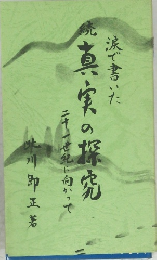 涙で書いた
続 真実の探究
二十一世紀に向かって
川 卯正 著